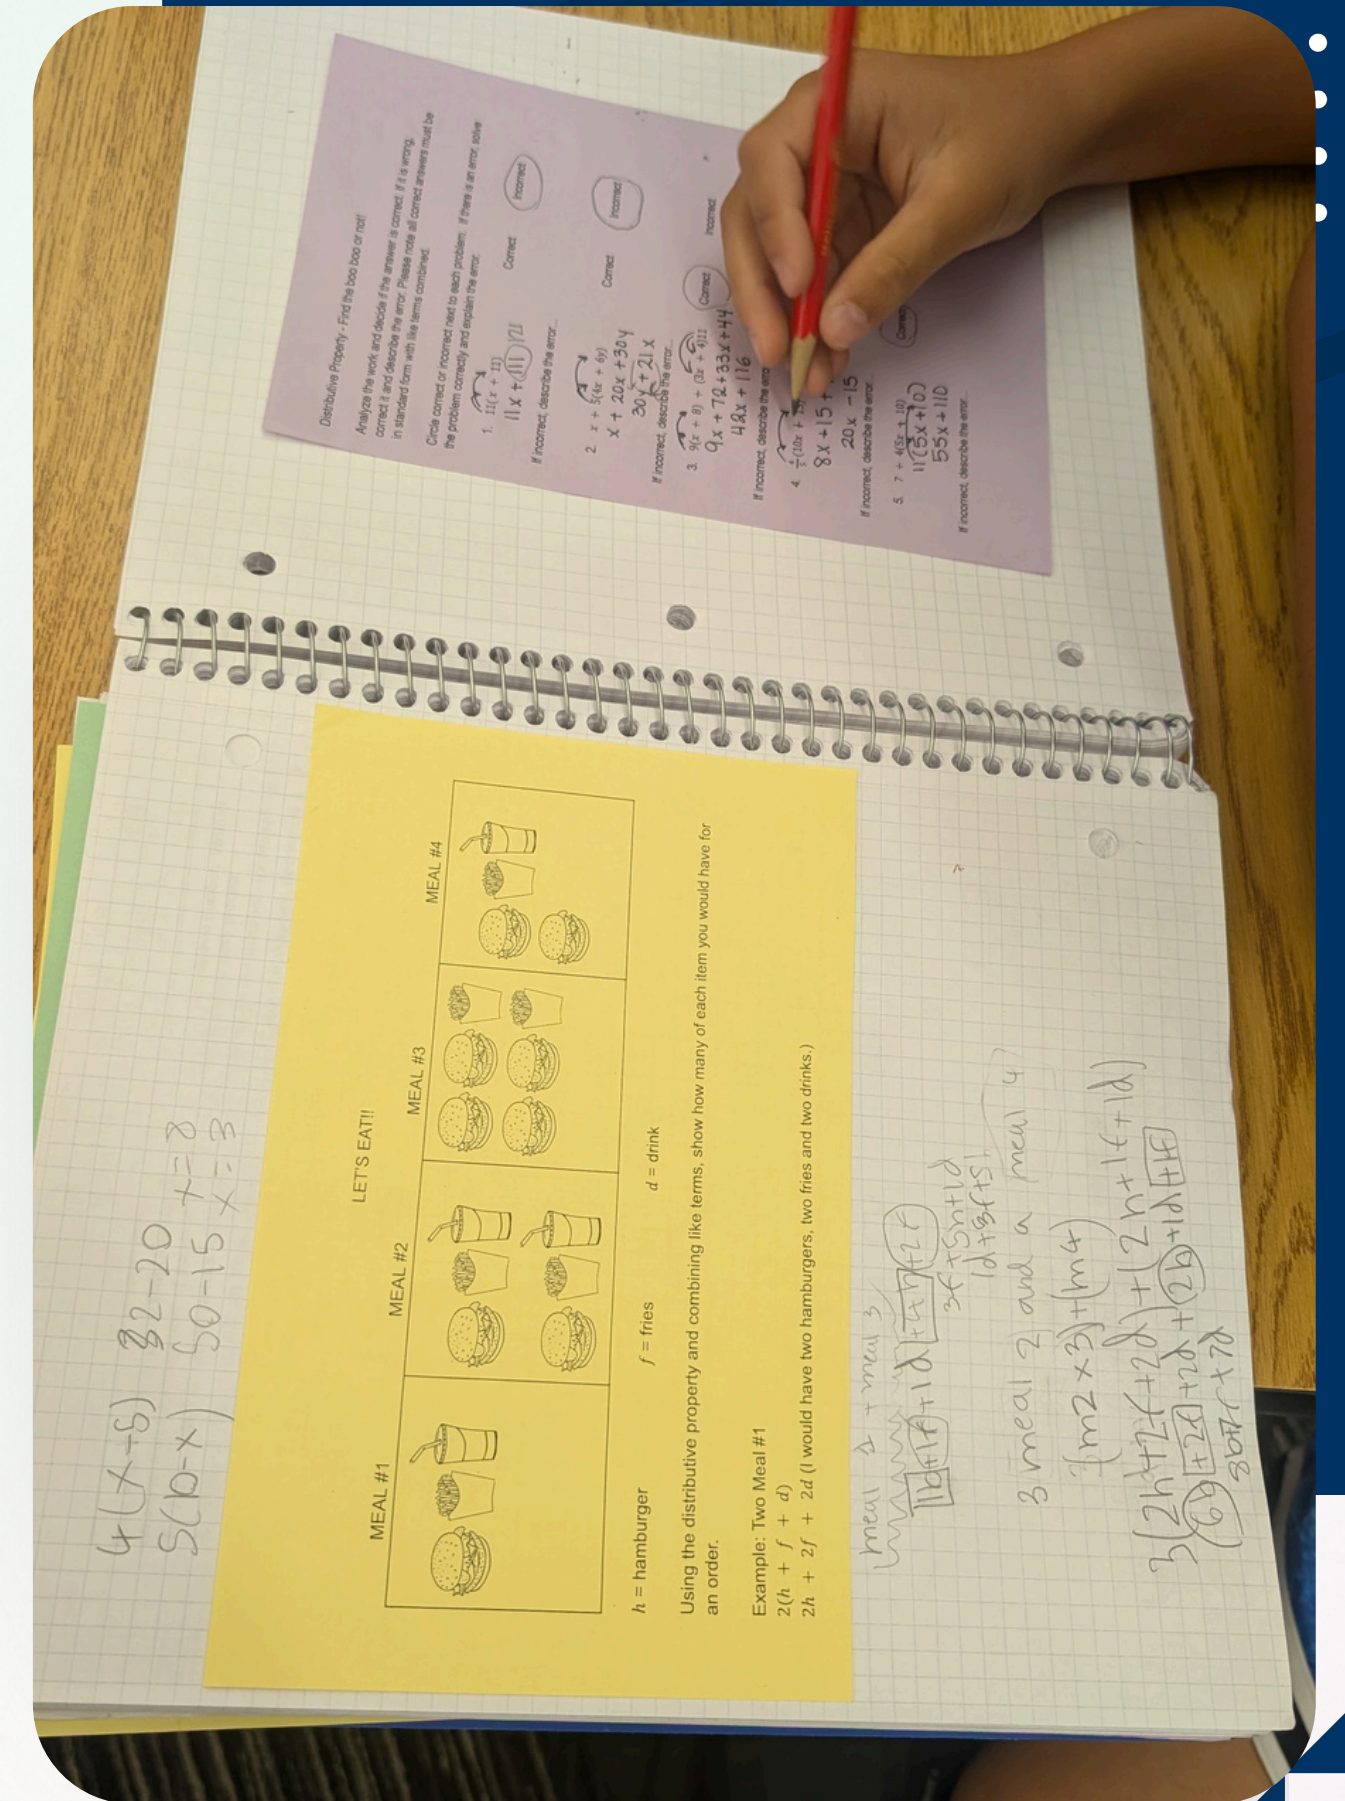 4(x-5) 32-20 x=8
5(10-x) 50-15 x=3
LET'S EAT!!
MEAL #1 MEAL #2 MEAL #3 MEAL #4
h = hamburger f = fries d = drink
Using the distributive property and combining like terms, show how many of each item you would have for
an order.
Example: Two Meal #1
2(h + f + d)
2h + 2f + 2d (I would have two hamburgers, two fries and two drinks.)
meal 1 + meal 3
+1f+1d+4h+2f
3f+5h+1d
1d+3f+5
3 meal 2 and a meal 4
3(m2x3)+(m4)
3(2h+2f+2d)+(2h+1f+1d)
+2f+2d+(2h+1d+1f
Distributive Property - Find the boo boo or not!
Analyze the work and decide if the answer is correct. If it is wrong,
correct it and describe the error. Please note all correct answers must be
in standard form with like terms combined.
Circle correct or incorrect next to each problem. If there is an error, solve
the problem correctly and explain the error.
1. 11(x + 11)
11x + 111 121 Correct Incorrect
If incorrect, describe the error...
2. x + 5(4x + 6y)
x + 20x + 30y Correct Incorrect
30y + 21x
If incorrect, describe the error...
3. 9(x + 8) + (3x + 4)11
9x + 72 + 33x + 44 Correct Incorrect
42x + 116
If incorrect, describe the erro
4. (10x +
8x + 15 +
20x - 15
If incorrect, describe the error...
5. 7 + 4(5x + 10)
11(5x + 10) Correct
55x + 110
If incorrect, describe the error...